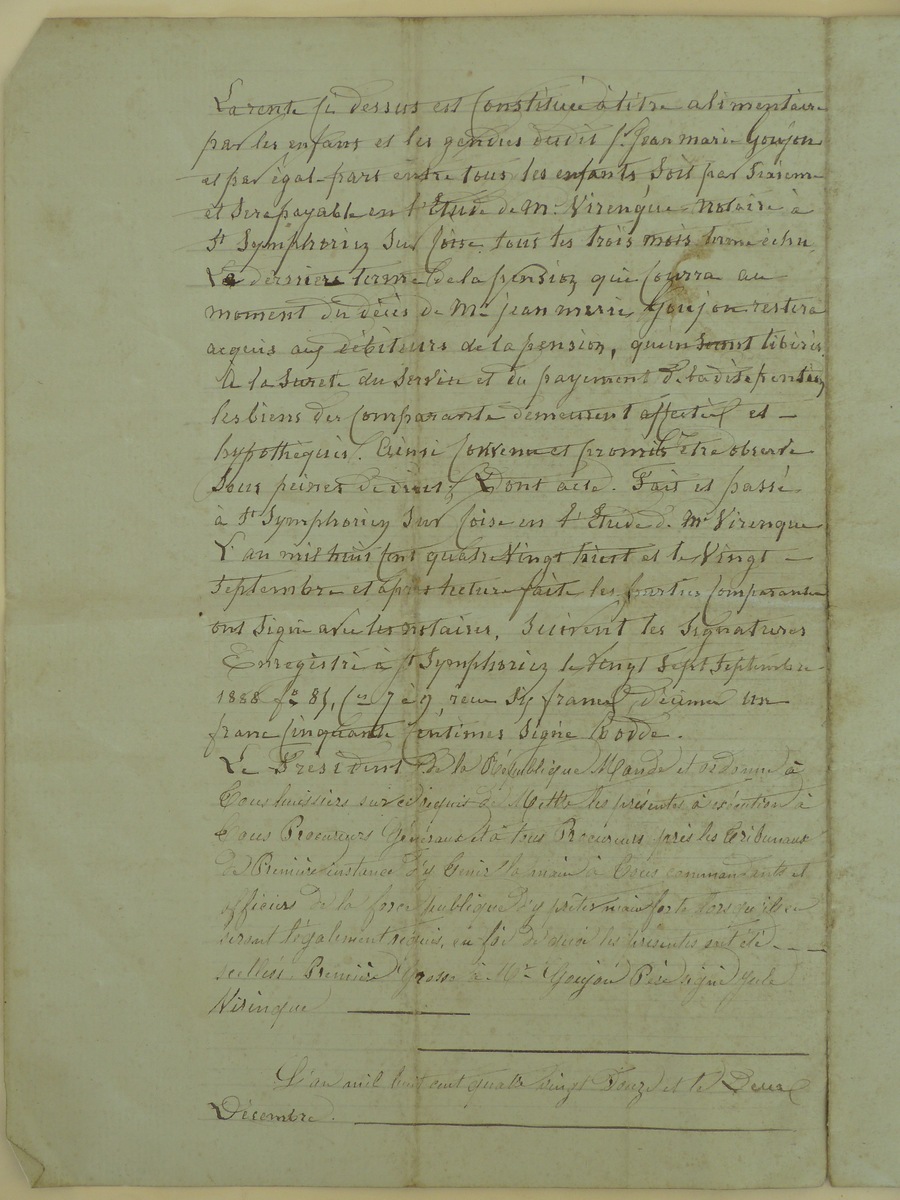 La rente ci dessus est constituée à titre alimentaire
par les enfants et les gendres dudit Sr. Jean marie Goujon
et par égal-part entre tous les enfants soit par sixième
et sera payable en l'Etude de Mr. Virenque Notaire à
St Symphorien sur Coise tous les trois mois terme échu
Le dernier terme de la pension qui courra au
moment du décès de Mr Jean marie Goujon restera
acquis aux débiteurs de la pension, qu'en seront libérés.
A la sureté du service et du payement de ladite pension
les biens des comparants demeurent affectés et -
hypothéqués. Ainsi convenu et promis être observé
sous peines de droit; Dont acte. Fait et passé
à St Symphorien sur Coise en l'Etude de Mr Virenque
L'an mil huit cent quatre Vingt huit et le Vingt -
Septembre et après lecture faite les parties comparantes
ont signé avec les notaires. Suivent les Signatures
Enregistré à St Symphorien le Vingt Sept Septembre
1888 fo 85, Ces 7 à 9, reçu six francs, décimes un
franc cinquante centimes signé Bodde.
Le Président de la République Mande et ordonne à
Tous huissiers sur ce requis de Mettre les présentes à exécution à
Tous Procureurs Généraux et à tous Procureurs près les Tribunaux
de Première instance d'y tenir la main à Tous commandants et
officiers de la force publique d'y prêter main forte lorsqu'ils en
seront légalement requis, en foi de quoi les présentes ont été - - -
scellées. Première Grosse à Mr Goujon Père signé
Virenque
L'an mil huit cent quatre vingt Douze et le Deux
Décembre.